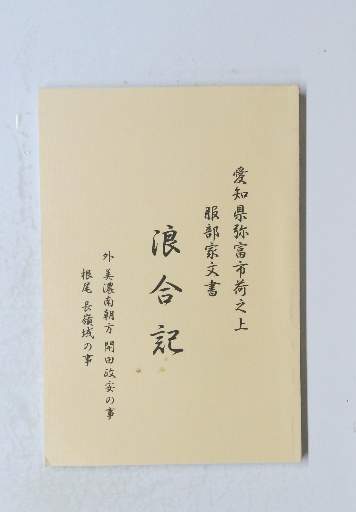 愛知県弥富市荷之上
服部家文書
浪合記
外 美濃南朝方 開田政安の事
根尾 長嶺城の事